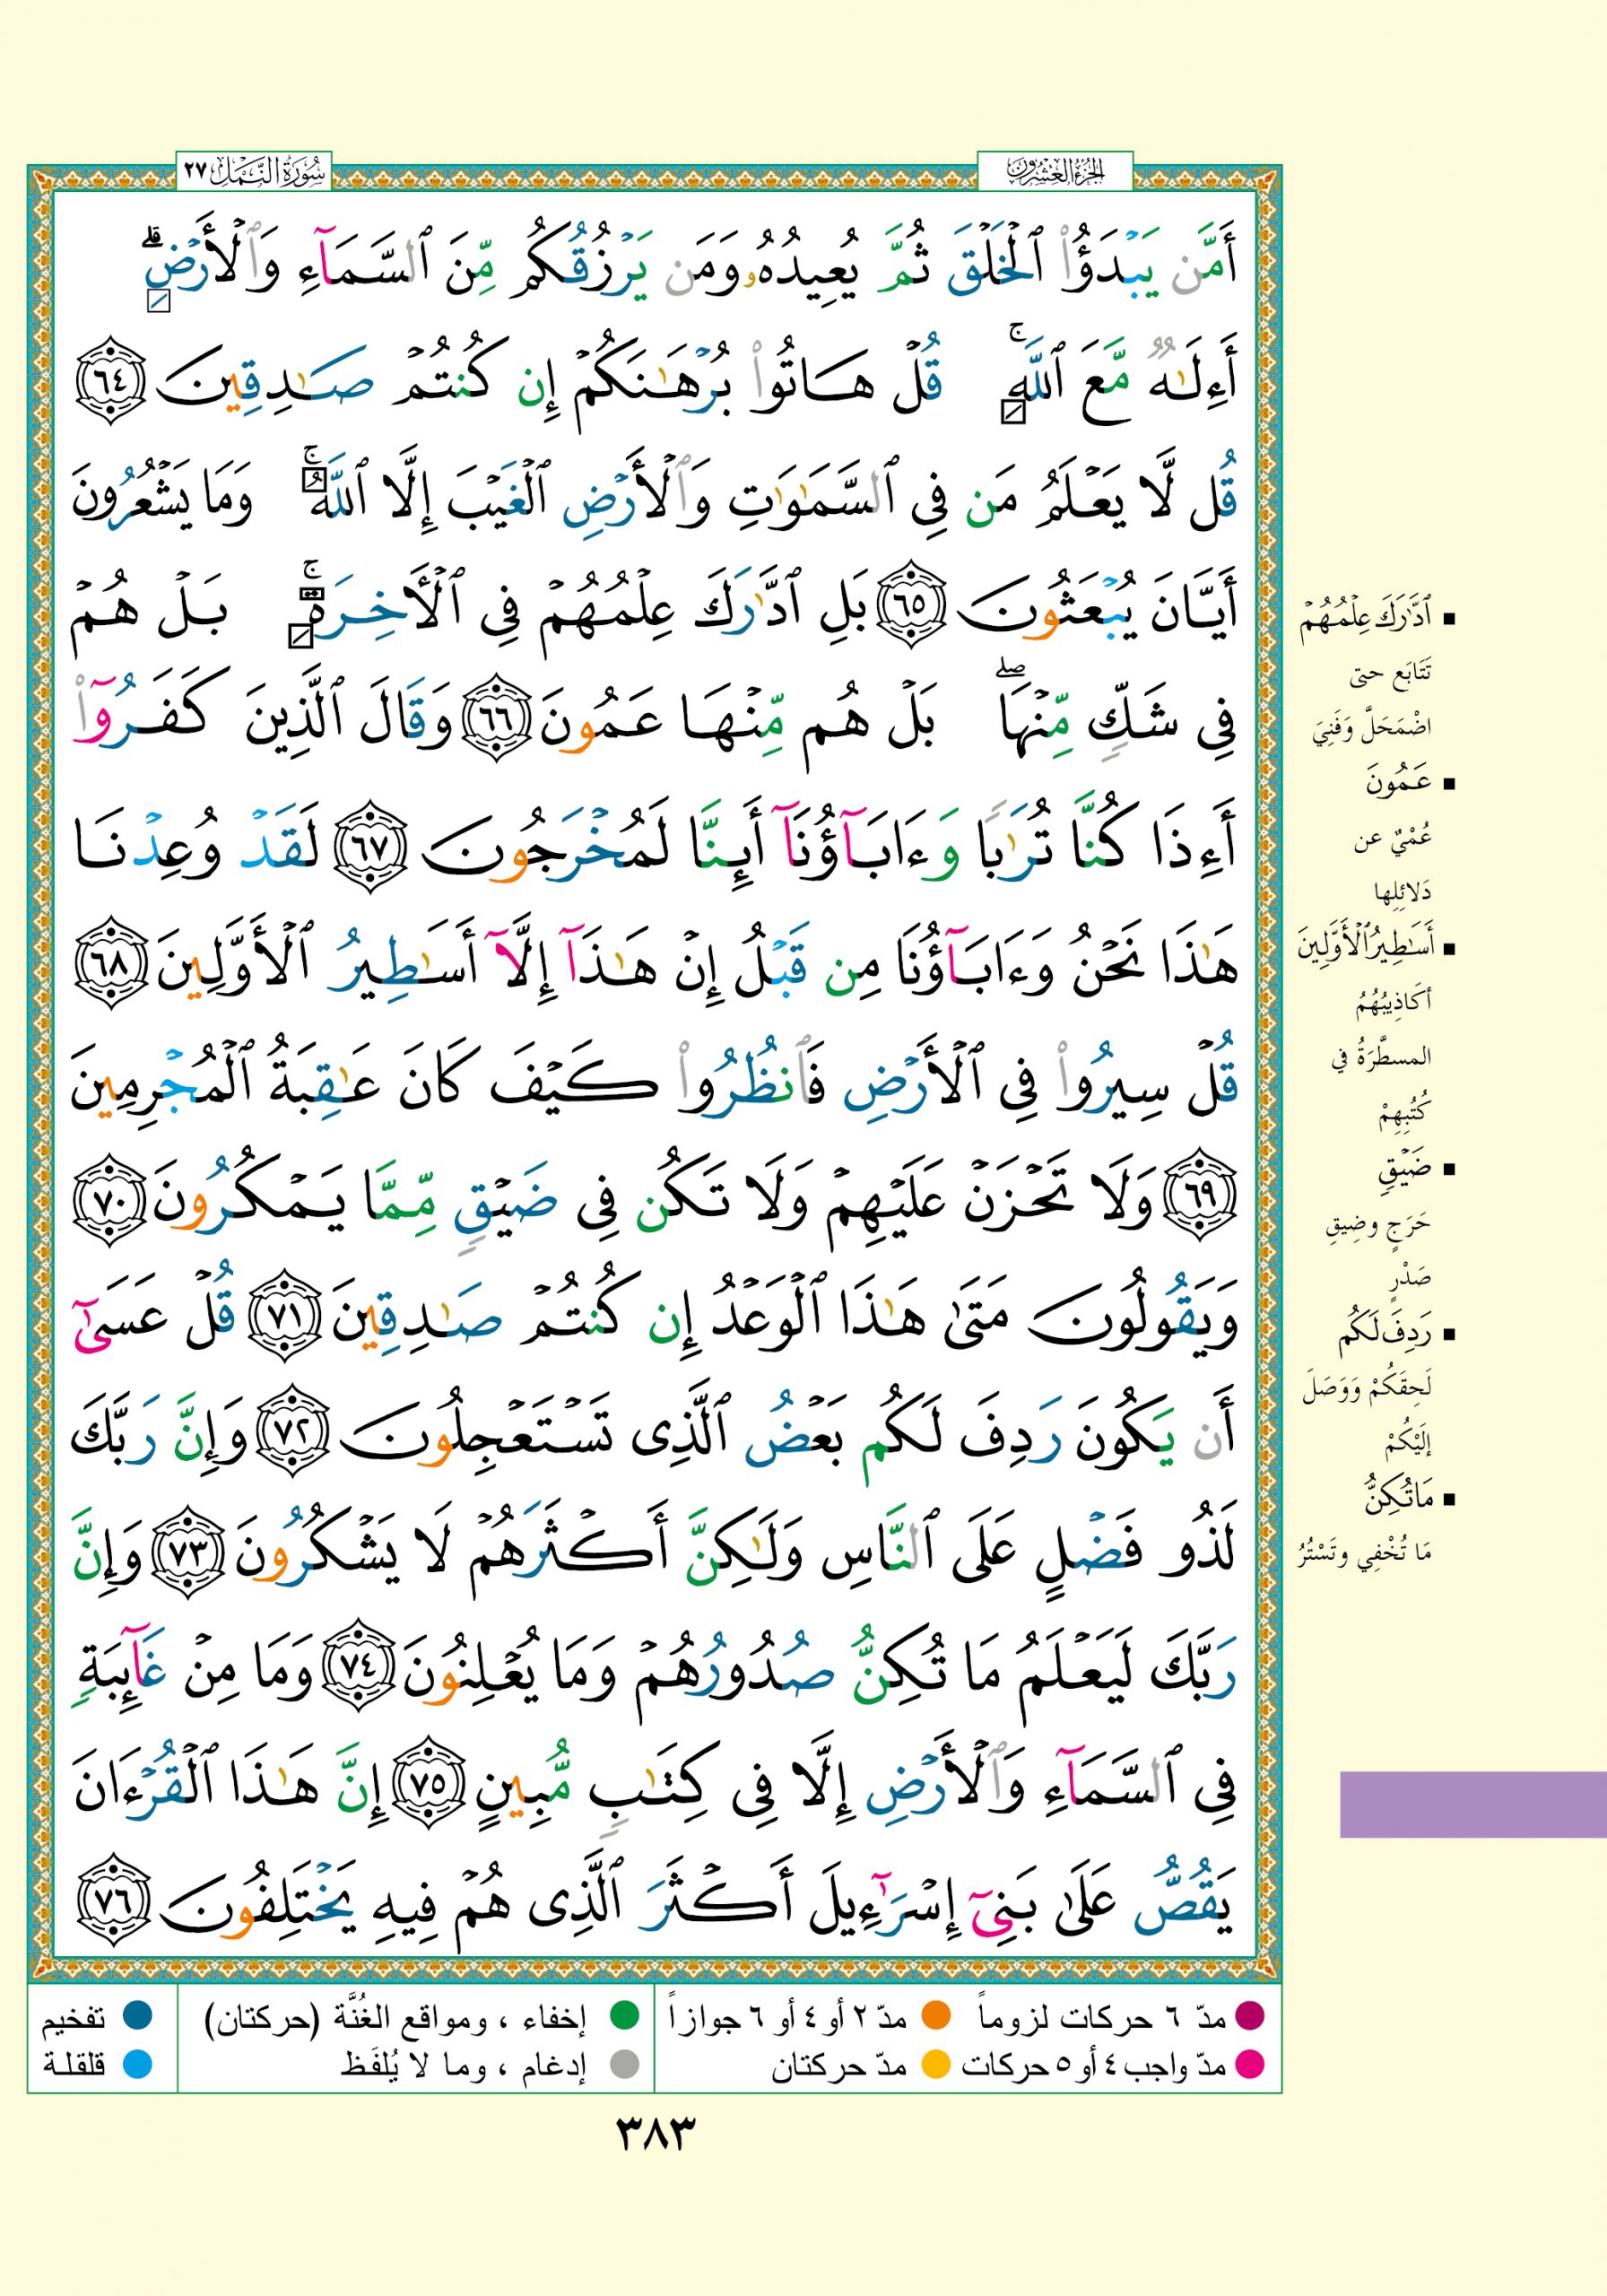 الجزء العشرون
سورة النمل ٢٧
أَمَّن يَبْدَؤُا۟ ٱلْخَلْقَ ثُمَّ يُعِيدُهُۥ وَمَن يَرْزُقُكُم مِّنَ ٱلسَّمَآءِ وَٱلْأَرْضِ ۗ
أَءِلَٰهٌ مَّعَ ٱللَّهِ ۚ قُلْ هَاتُوا۟ بُرْهَٰنَكُمْ إِن كُنتُمْ صَٰدِقِينَ ٦٤
قُل لَّا يَعْلَمُ مَن فِى ٱلسَّمَٰوَٰتِ وَٱلْأَرْضِ ٱلْغَيْبَ إِلَّا ٱللَّهُ ۚ وَمَا يَشْعُرُونَ
أَيَّانَ يُبْعَثُونَ ٦٥ بَلِ ٱدَّٰرَكَ عِلْمُهُمْ فِى ٱلْأَخِرَةِ ۚ بَلْ هُمْ
فِى شَكٍّ مِّنْهَا ۖ بَلْ هُم مِّنْهَا عَمُونَ ٦٦ وَقَالَ ٱلَّذِينَ كَفَرُوٓا۟
أَءِذَا كُنَّا تُرَٰبًا وَءَابَآؤُنَآ أَئِنَّا لَمُخْرَجُونَ ٦٧ لَقَدْ وُعِدْنَا
هَٰذَا نَحْنُ وَءَابَآؤُنَا مِن قَبْلُ إِنْ هَٰذَآ إِلَّآ أَسَٰطِيرُ ٱلْأَوَّلِينَ ٦٨
قُلْ سِيرُوا۟ فِى ٱلْأَرْضِ فَٱنظُرُوا۟ كَيْفَ كَانَ عَٰقِبَةُ ٱلْمُجْرِمِينَ
٦٩ وَلَا تَحْزَنْ عَلَيْهِمْ وَلَا تَكُن فِى ضَيْقٍ مِّمَّا يَمْكُرُونَ ٧٠
وَيَقُولُونَ مَتَىٰ هَٰذَا ٱلْوَعْدُ إِن كُنتُمْ صَٰدِقِينَ ٧١ قُلْ عَسَىٰٓ
أَن يَكُونَ رَدِفَ لَكُم بَعْضُ ٱلَّذِى تَسْتَعْجِلُونَ ٧٢ وَإِنَّ رَبَّكَ
لَذُو فَضْلٍ عَلَى ٱلنَّاسِ وَلَٰكِنَّ أَكْثَرَهُمْ لَا يَشْكُرُونَ ٧٣ وَإِنَّ
رَبَّكَ لَيَعْلَمُ مَا تُكِنُّ صُدُورُهُمْ وَمَا يُعْلِنُونَ ٧٤ وَمَا مِنْ غَآئِبَةٍ
فِى ٱلسَّمَآءِ وَٱلْأَرْضِ إِلَّا فِى كِتَٰبٍ مُّبِينٍ ٧٥ إِنَّ هَٰذَا ٱلْقُرْءَانَ
يَقُصُّ عَلَىٰ بَنِىٓ إِسْرَٰٓءِيلَ أَكْثَرَ ٱلَّذِى هُمْ فِيهِ يَخْتَلِفُونَ ٧٦
ٱدَّٰرَكَ عِلْمُهُمْ
تَتَابَع حتى
اضْمَحَلَّ وَفَنِيَ
عَمُونَ
عُمْيٌ عن
دَلائِلِها
أَسَٰطِيرُ ٱلْأَوَّلِينَ
أكَاذِيبُهُمُ
المسطَّرَةُ في
كُتُبِهِمْ
ضَيْقٍ
حَرَجٍ وضِيقِ
صَدْرٍ
رَدِفَ لَكُم
لَحِقَكُمْ وَوَصَلَ
إلَيْكُمْ
مَا تُكِنُّ
مَا تُخْفِي وتَسْتُرُ
مدّ ٦ حركات لزوماً مدّ ٢ أو ٤ أو ٦ جوازاً إخفاء ، ومواقع الغُنَّة (حركتان) تفخيم
مدّ واجب ٤ أو ٥ حركات مدّ حركتان إدغام ، وما لا يُلفَظ قلقلة
٣٨٣